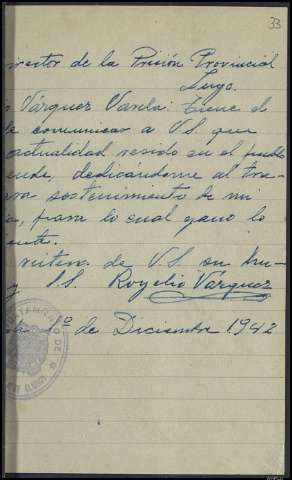 33
irector de la Prisión Provincial
Lugo.
Vázquez Varela: tiene el
de comunicar a VS. que
actualidad resido en el pueblo
ende, dedicándome al tra-
ara sostenimiento de mi
a, para lo cual gano lo
ente.
miten. de V.S. en tru-
y SS. Rogelio Vázquez
1º de Diciembre 1942